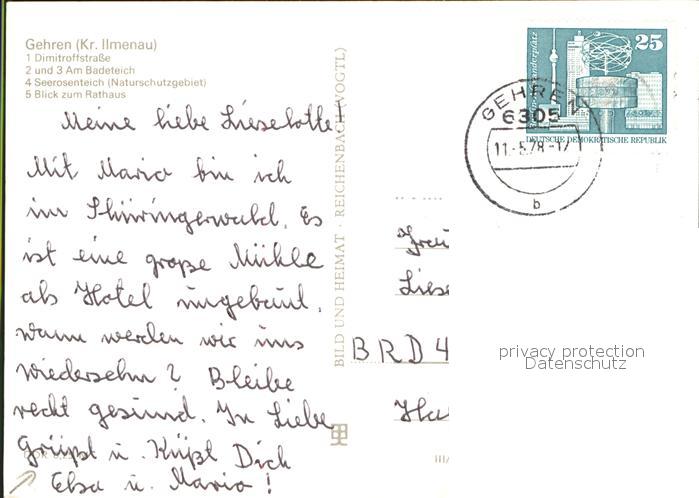 Gehren (Kr. Ilmenau)
1 Dimitroffstraße
2 und 3 Am Badeteich
4 Seerosenteich (Naturschutzgebiet)
5 Blick zum Rathaus
Meine liebe Lieselotte!
Mit Mario bin ich
im Thüringerwald. Es
ist eine große Mühle
als Hotel umgebaut.
wann werden wir uns
wiedersehn? Bleibe
recht gesund. In Liebe
Grüßt u. Küßt Dich
Elsa u. Mario!
BILD UND HEIMAT · REICHENBACH (VOGTL)
III/
25
DEUTSCHE DEMOKRATISCHE REPUBLIK
GEHREN 1
6305
11.-5.78.-17
b
Frau
Liese
BRD 4
Ha
privacy protection
Datenschutz